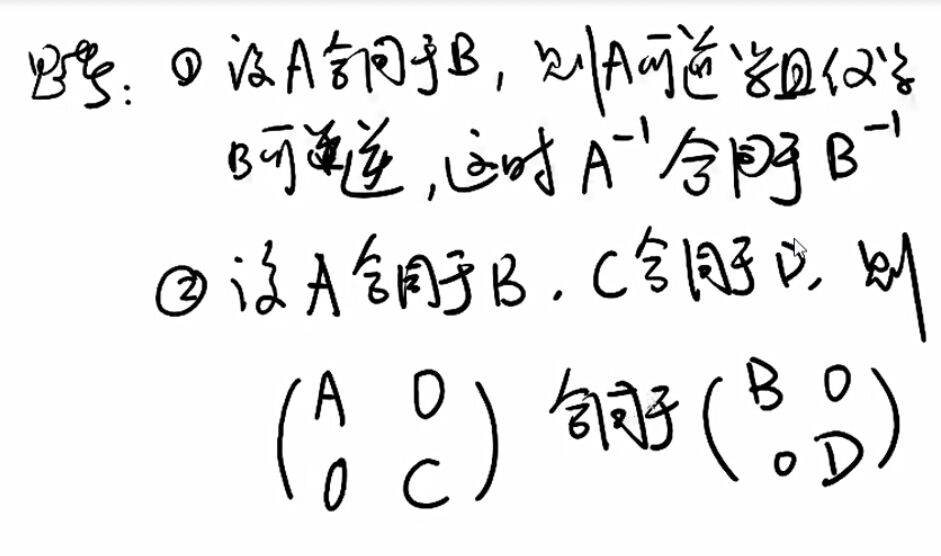 思考：① 设A合同于B，则A可逆当且仅当
B可逆，这时 A⁻¹ 合同于 B⁻¹
② 设A合同于B，C合同于D，则
(A 0 合同于 (B 0
0 C) 0 D)